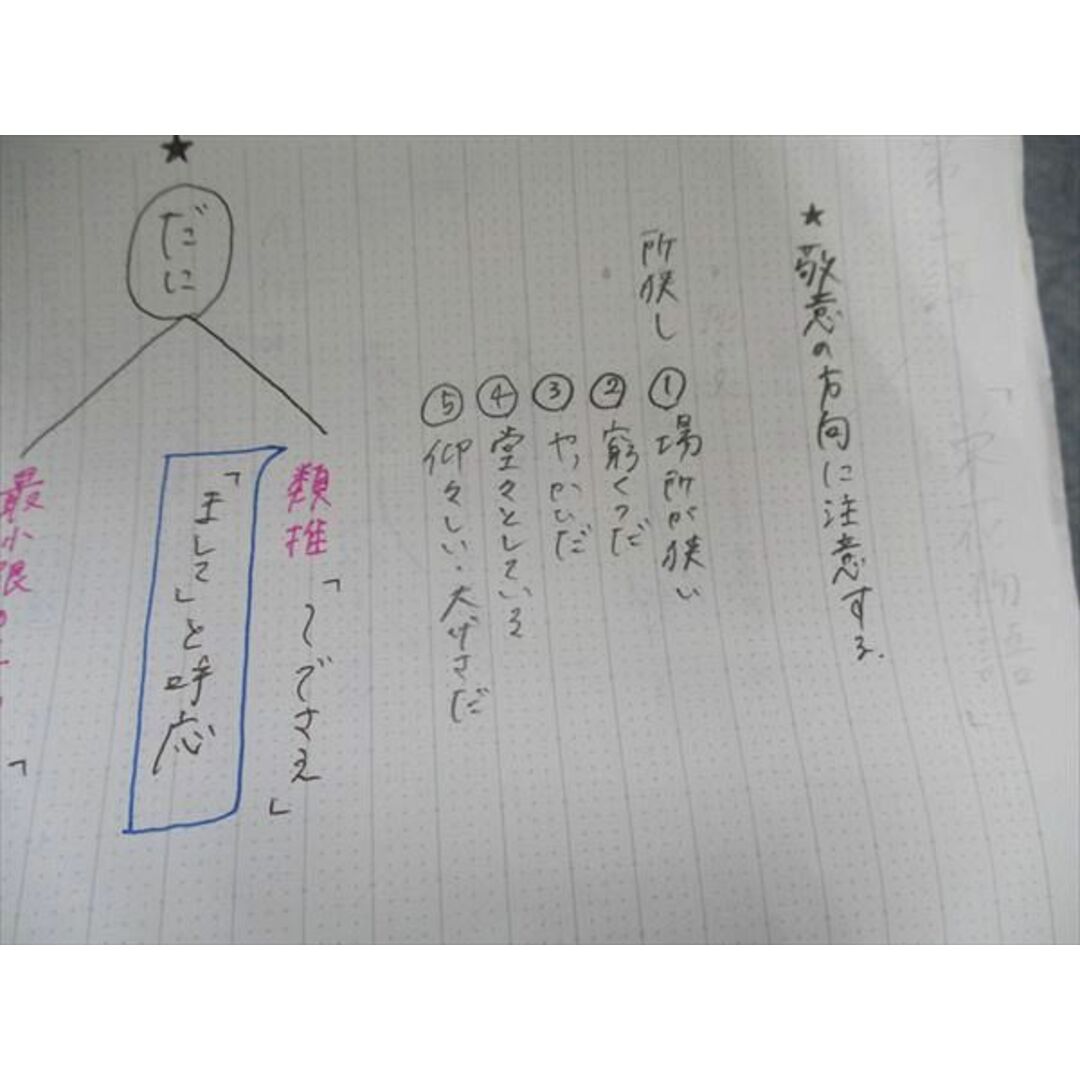 ★ 敬意の方向に注意する.
所狭し ① 場所が狭い
② 窮くつだ
③ やっかいだ
④ 堂々としている
⑤ 仰々しい・大げさだ
★
だに
類推「〜でさえ」
「まして」と呼応
最小限の